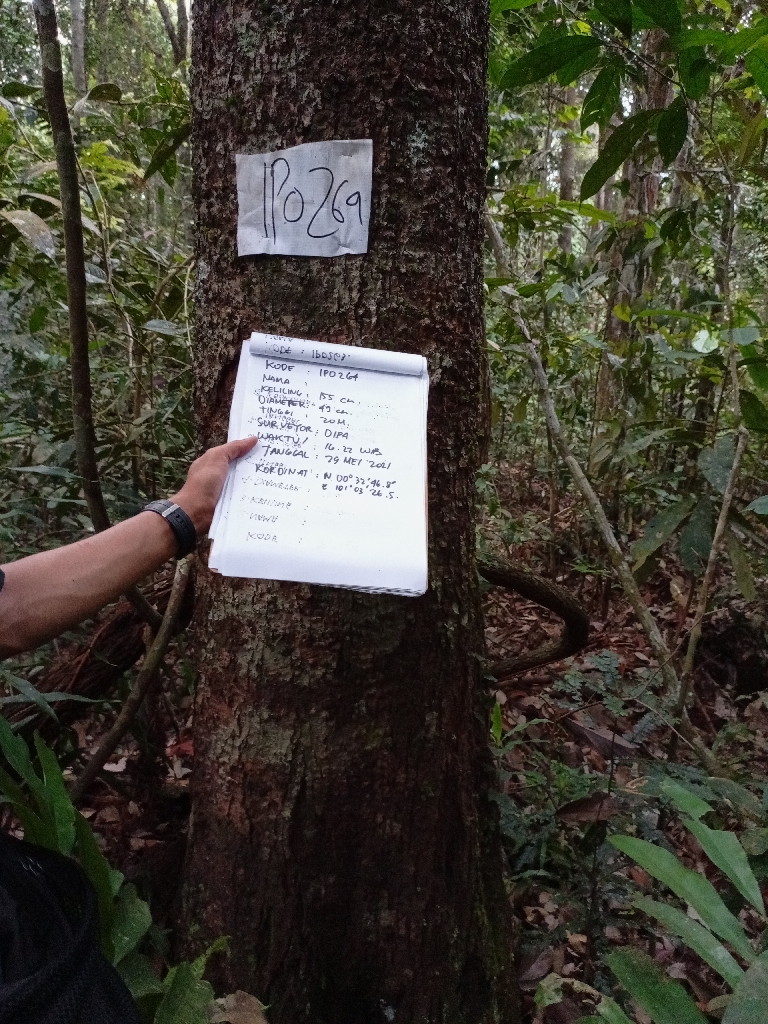 IPO269
KODE :
KODE : IPO269
NAMA :
KELILING : 155 cm.
DIAMETER : 49 cm.
TINGGI : 20 M.
SURVEYOR : DIPA
WAKTU : 16.22 WIB
TANGGAL : 29 MEI 2021
KORDINAT : N 00°32'46.8"
E 101°03'26.5.
KODE :